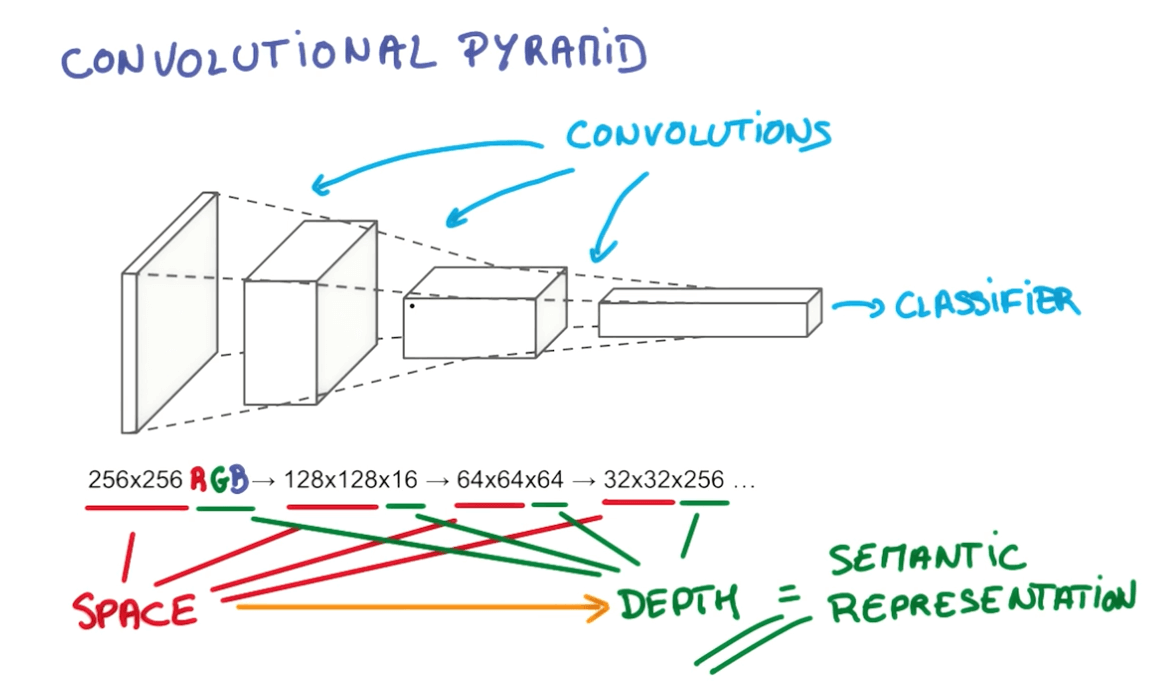 CONVOLUTIONAL PYRAMID
CONVOLUTIONS
→ CLASSIFIER
256x256 RGB → 128x128x16 → 64x64x64 → 32x32x256 ...
SPACE → DEPTH = SEMANTIC
REPRESENTATION